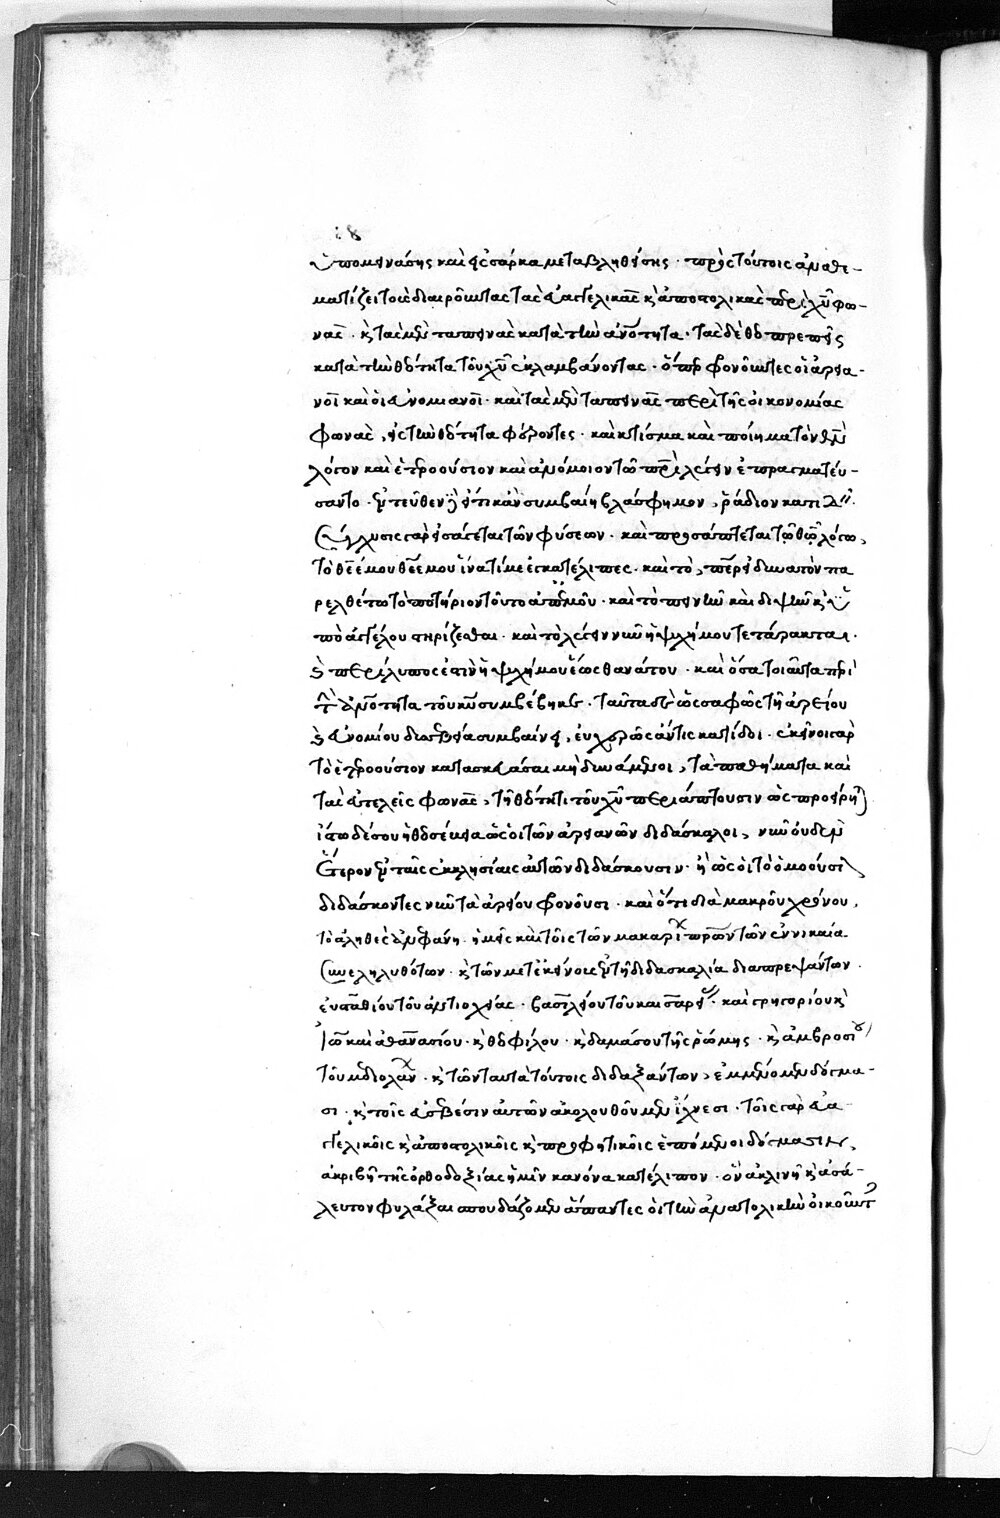 ὑπομεινάσης καὶ εἰς σάρκα μεταβληθείσης · πρὸς τούτοις ἀναθε-
ματίζει τοὺς διαιροῦντας τὰς εὐαγγελικὰς κ̀ ἀποστολικὰς περὶ χῦ φω-
νάς · κ̀ τὰς μὲν ταπεινὰς κατὰ τὴν ἀνότητα · τὰς δὲ θεοπρεπεῖς
κατὰ τὴν θεότητα τοῦ χῦ ἐκλαμβάνοντας · ὅπερ φρονοῦντες οἱ ἀρεια-
νοὶ καὶ οἱ εὐνομιανοὶ · καὶ τὰς μὲν ταπεινὰς περὶ τῆς οἰκονομίας
φωνὰς, εἰς τὴν θεότητα φέροντες · καὶ κτίσμα καὶ ποίημα τὸν θν̀
λόγον καὶ ἑτεροούσιον καὶ ἀνόμοιον τῶ πρὶ λέγειν ἐπραγματεύ-
σαντο · ἐντεῦθεν ὅτι κἂν συμβαίη βλάσφημον, ῥάδιον κατιδ
σύγχυσις γὰρ εἰσάγεται τῶν φύσεων · καὶ προσάπτεται τῶ θῶ λόγω,
τὸ θέ μου θέ μου ἵνα τί με ἐγκατέλιπες · καὶ τὸ, περ εἰ δυνατὸν πα
ρελθέτω τὸ ποτήριον τοῦτο ἀπ' ἐμοῦ · καὶ τὸ πεινῆν καὶ διψῆν κ̀ ὑ
πὸ ἀγγέλου στηρίζεσθαι · καὶ τὸ λέγειν νῦν ἡ ψυχή μου τετάρακται ·
κ̀ περίλυπός ἐστιν ἡ ψυχή μου ἕως θανάτου · καὶ ὅσα τοιαῦτα περὶ
τ̀ ἀνότητα τοῦ κῦ συμβέβηκεν · ταῦτα δὲ ὡς σαφῶς τῆ ἀρείου
κ̀ εὐνομίου δυσσεβεία συμβαίνει, εὐχερῶς ἄν τις κατίδοι · ἐκεῖνοι γὰρ
τὸ ἑτεροούσιον κατασκευάσαι μὴ δυνάμενοι, τὰ παθήματα καὶ
τὰς εὐτελεῖς φωνὰς, τῆ θεότητι τοῦ χῦ περιάπτουσιν ὡς προείρητ
ἴστω δέ σου ἡ θεοσέβεια ὡς οἱ τῶν ἀρειανῶν διδάσκαλοι, νῦν οὐδὲν
ἕτερον ἐν ταῖς ἐκκλησίαις αὐτῶν διδάσκουσιν · ἢ ὡς οἱ τὸ ὁμοούσι
διδάσκοντες νῦν τὰ ἀρείου φρονοῦσι · καὶ ὅτι διὰ μακροῦ χρόνου,
τὸ ἀληθὲς ἀνεφάνη · ἡμεῖς καὶ τοῖς τῶν μακαρί πρων τῶν ἐν νικαία
συνεληλυθότων · κ̀ τῶν μετ' ἐκείνους ἐν τῆ διδασκαλία διαπρεψάντων ·
εὐσταθίου τοῦ ἀντιοχείας · βασιλείου τοῦ καισαρεί · καὶ γρηγορίου κ̀
ἰῶ καὶ ἀθανασίου · κ̀ θεοφίλου · κ̀ δαμάσου τῆς ῥώμης · κ̀ ἀμβροσίου
τοῦ μεδιολάν · κ̀ τῶν ταυτὰ τούτοις διδαξάντων, ἐμμένομεν δόγμα-
σι · κ̀ τοῖς εὐσεβέσιν αὐτῶν ἀκολουθοῦμεν ἴχνεσι · τοῖς γὰρ εὐα-
γγελικοῖς κ̀ ἀποστολικοῖς κ̀ προφητικοῖς ἑπόμενοι δόγμασιν,
ἀκριβῆ τῆς ὀρθοδοξίας ἡμῖν κανόνα κατέλιπον · ὃν ἀκλινῆ κ̀ ἀσά-
λευτον φυλάξαι σπουδάζομεν ἅπαντες οἱ τὴν ἀνατολικὴν οἰκοῦντ